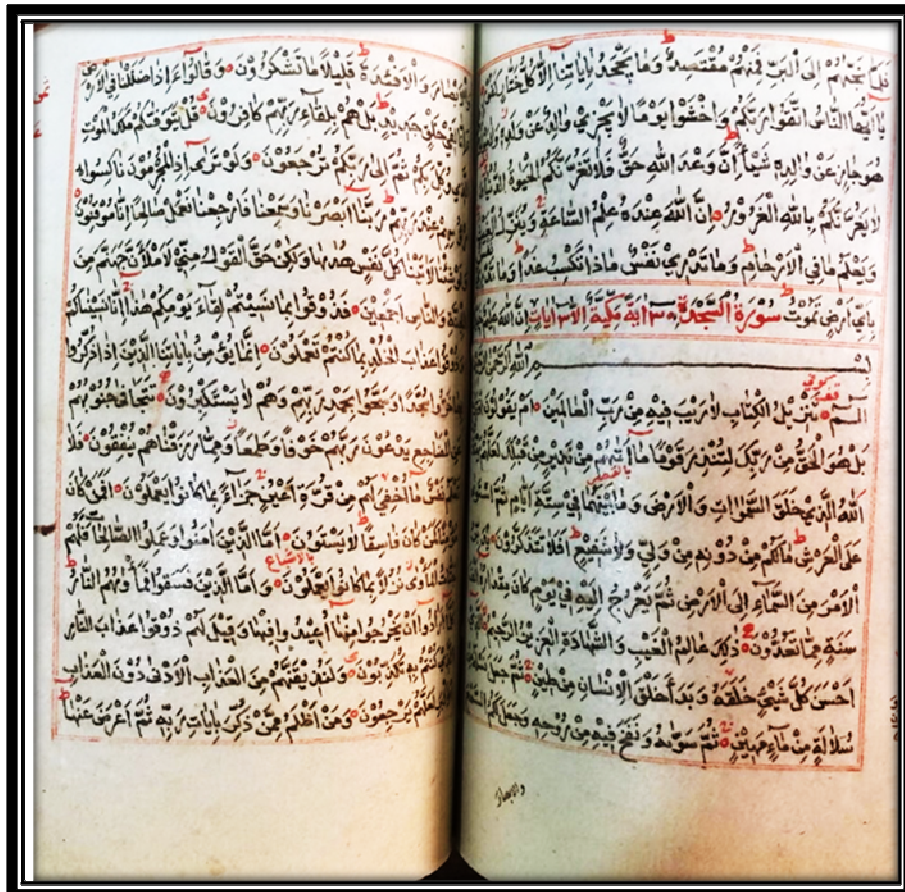 فَلَمَّا نَجّٰهُمْ اِلَى الْبَرِّ فَمِنْهُمْ مُقْتَصِدٌ وَمَا يَجْحَدُ بِاٰيَاتِنَا اِلَّا كُلُّ خَتَّارٍ
يَا اَيُّهَا النَّاسُ اتَّقُوا رَبَّكُمْ وَاخْشَوْا يَوْمًا لَا يَجْزِي وَالِدٌ عَنْ وَلَدِهِ
هُوَ جَازٍ عَنْ وَالِدِهِ شَيْئًا اِنَّ وَعْدَ اللهِ حَقٌّ فَلَا تَغُرَّنَّكُمُ الْحَيٰوةُ الدُّنْيَا
لَا يَغُرَّنَّكُمْ بِاللهِ الْغَرُورُ اِنَّ اللهَ عِنْدَهُ عِلْمُ السَّاعَةِ وَيُنَزِّلُ
وَيَعْلَمُ مَا فِي الْاَرْحَامِ وَمَا تَدْرِي نَفْسٌ مَاذَا تَكْسِبُ غَدًا وَمَا
بِاَيِّ اَرْضٍ تَمُوتُ سُورَةُ السَّجْدَةِ ٣٠ اية مَكِّيَّةٌ اِلَّا ٣ اٰيَاتٍ اِنَّ اللهَ عَلِيمٌ
بِسْمِ اللهِ الرَّحْمٰنِ
كوفي
الٓمٓ تَنْزِيلُ الْكِتَابِ لَا رَيْبَ فِيهِ مِنْ رَبِّ الْعَالَمِينَ اَمْ يَقُولُونَ
بَلْ هُوَ الْحَقُّ مِنْ رَبِّكَ لِتُنْذِرَ قَوْمًا مَا اَتٰيهُمْ مِنْ نَذِيرٍ مِنْ قَبْلِكَ لَعَلَّهُمْ
اَللهُ الَّذِي خَلَقَ السَّمٰوَاتِ وَالْاَرْضَ وَمَا بَيْنَهُمَا فِي سِتَّةِ اَيَّامٍ ثُمَّ
عَلَى الْعَرْشِ مَا لَكُمْ مِنْ دُونِهِ مِنْ وَلِيٍّ وَلَا شَفِيعٍ اَفَلَا تَتَذَكَّرُونَ
الْاَمْرَ مِنَ السَّمَاءِ اِلَى الْاَرْضِ ثُمَّ يَعْرُجُ اِلَيْهِ فِي يَوْمٍ كَانَ مِقْدَارُهُ
سَنَةٍ مِمَّا تَعُدُّونَ ذٰلِكَ عَالِمُ الْغَيْبِ وَالشَّهَادَةِ الْعَزِيزُ الرَّحِيمُ
اَحْسَنَ كُلَّ شَيْءٍ خَلَقَهُ وَبَدَاَ خَلْقَ الْاِنْسَانِ مِنْ طِينٍ ثُمَّ جَعَلَ
سُلَالَةٍ مِنْ مَاءٍ مَهِينٍ ثُمَّ سَوّٰيهُ وَنَفَخَ فِيهِ مِنْ رُوحِهِ وَجَعَلَ لَكُمُ
والابصار
وَالْاَبْصَارَ وَالْاَفْئِدَةَ قَلِيلًا مَا تَشْكُرُونَ وَقَالُوا ءَاِذَا ضَلَلْنَا فِي الْاَرْضِ
لَفِي خَلْقٍ جَدِيدٍ بَلْ هُمْ بِلِقَاءِ رَبِّهِمْ كَافِرُونَ قُلْ يَتَوَفّٰكُمْ مَلَكُ الْمَوْتِ
وُكِّلَ بِكُمْ ثُمَّ اِلٰى رَبِّكُمْ تُرْجَعُونَ وَلَوْ تَرٰى اِذِ الْمُجْرِمُونَ نَاكِسُوا
عِنْدَ رَبِّهِمْ رَبَّنَا اَبْصَرْنَا وَسَمِعْنَا فَارْجِعْنَا نَعْمَلْ صَالِحًا اِنَّا مُوقِنُونَ
شِئْنَا لَاٰتَيْنَا كُلَّ نَفْسٍ هُدٰيهَا وَلٰكِنْ حَقَّ الْقَوْلُ مِنِّي لَاَمْلَاَنَّ جَهَنَّمَ مِنَ
وَالنَّاسِ اَجْمَعِينَ فَذُوقُوا بِمَا نَسِيتُمْ لِقَاءَ يَوْمِكُمْ هٰذَا اِنَّا نَسِينَاكُمْ
وَذُوقُوا عَذَابَ الْخُلْدِ بِمَا كُنْتُمْ تَعْمَلُونَ اِنَّمَا يُؤْمِنُ بِاٰيَاتِنَا الَّذِينَ اِذَا ذُكِّرُوا
سُجَّدًا وَسَبَّحُوا بِحَمْدِ رَبِّهِمْ وَهُمْ لَا يَسْتَكْبِرُونَ تَتَجَافٰى جُنُوبُهُمْ
عَنِ الْمَضَاجِعِ يَدْعُونَ رَبَّهُمْ خَوْفًا وَطَمَعًا وَمِمَّا رَزَقْنَاهُمْ يُنْفِقُونَ فَلَا
تَعْلَمُ نَفْسٌ مَا اُخْفِيَ لَهُمْ مِنْ قُرَّةِ اَعْيُنٍ جَزَاءً بِمَا كَانُوا يَعْمَلُونَ اَفَمَنْ كَانَ
كَمَنْ كَانَ فَاسِقًا لَا يَسْتَوُونَ اَمَّا الَّذِينَ اٰمَنُوا وَعَمِلُوا الصَّالِحَاتِ فَلَهُمْ
جَنَّاتُ الْمَاْوٰى نُزُلًا بِمَا كَانُوا يَعْمَلُونَ وَاَمَّا الَّذِينَ فَسَقُوا فَمَاْوٰيهُمُ النَّارُ
اَرَادُوا اَنْ يَخْرُجُوا مِنْهَا اُعِيدُوا فِيهَا وَقِيلَ لَهُمْ ذُوقُوا عَذَابَ النَّارِ
كُنْتُمْ بِهِ تُكَذِّبُونَ وَلَنُذِيقَنَّهُمْ مِنَ الْعَذَابِ الْاَدْنٰى دُونَ الْعَذَابِ
لَعَلَّهُمْ يَرْجِعُونَ وَمَنْ اَظْلَمُ مِمَّنْ ذُكِّرَ بِاٰيَاتِ رَبِّهِ ثُمَّ اَعْرَضَ عَنْهَا